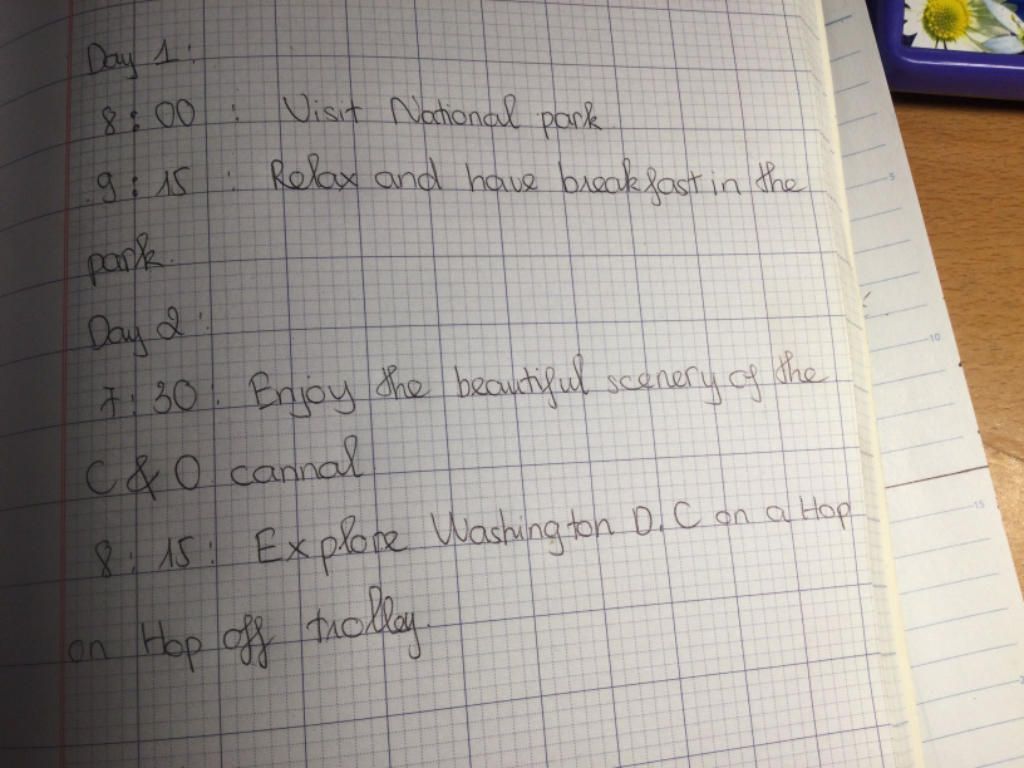 Day 1:
8:00 : Visit National park
9:15 : Relax and have breakfast in the
park.
Day 2:
7:30: Enjoy the beautiful scenery of the
C & O cannal
8:15: Explore Washington D.C on a Hop
on Hop off trolley.
5
10
15